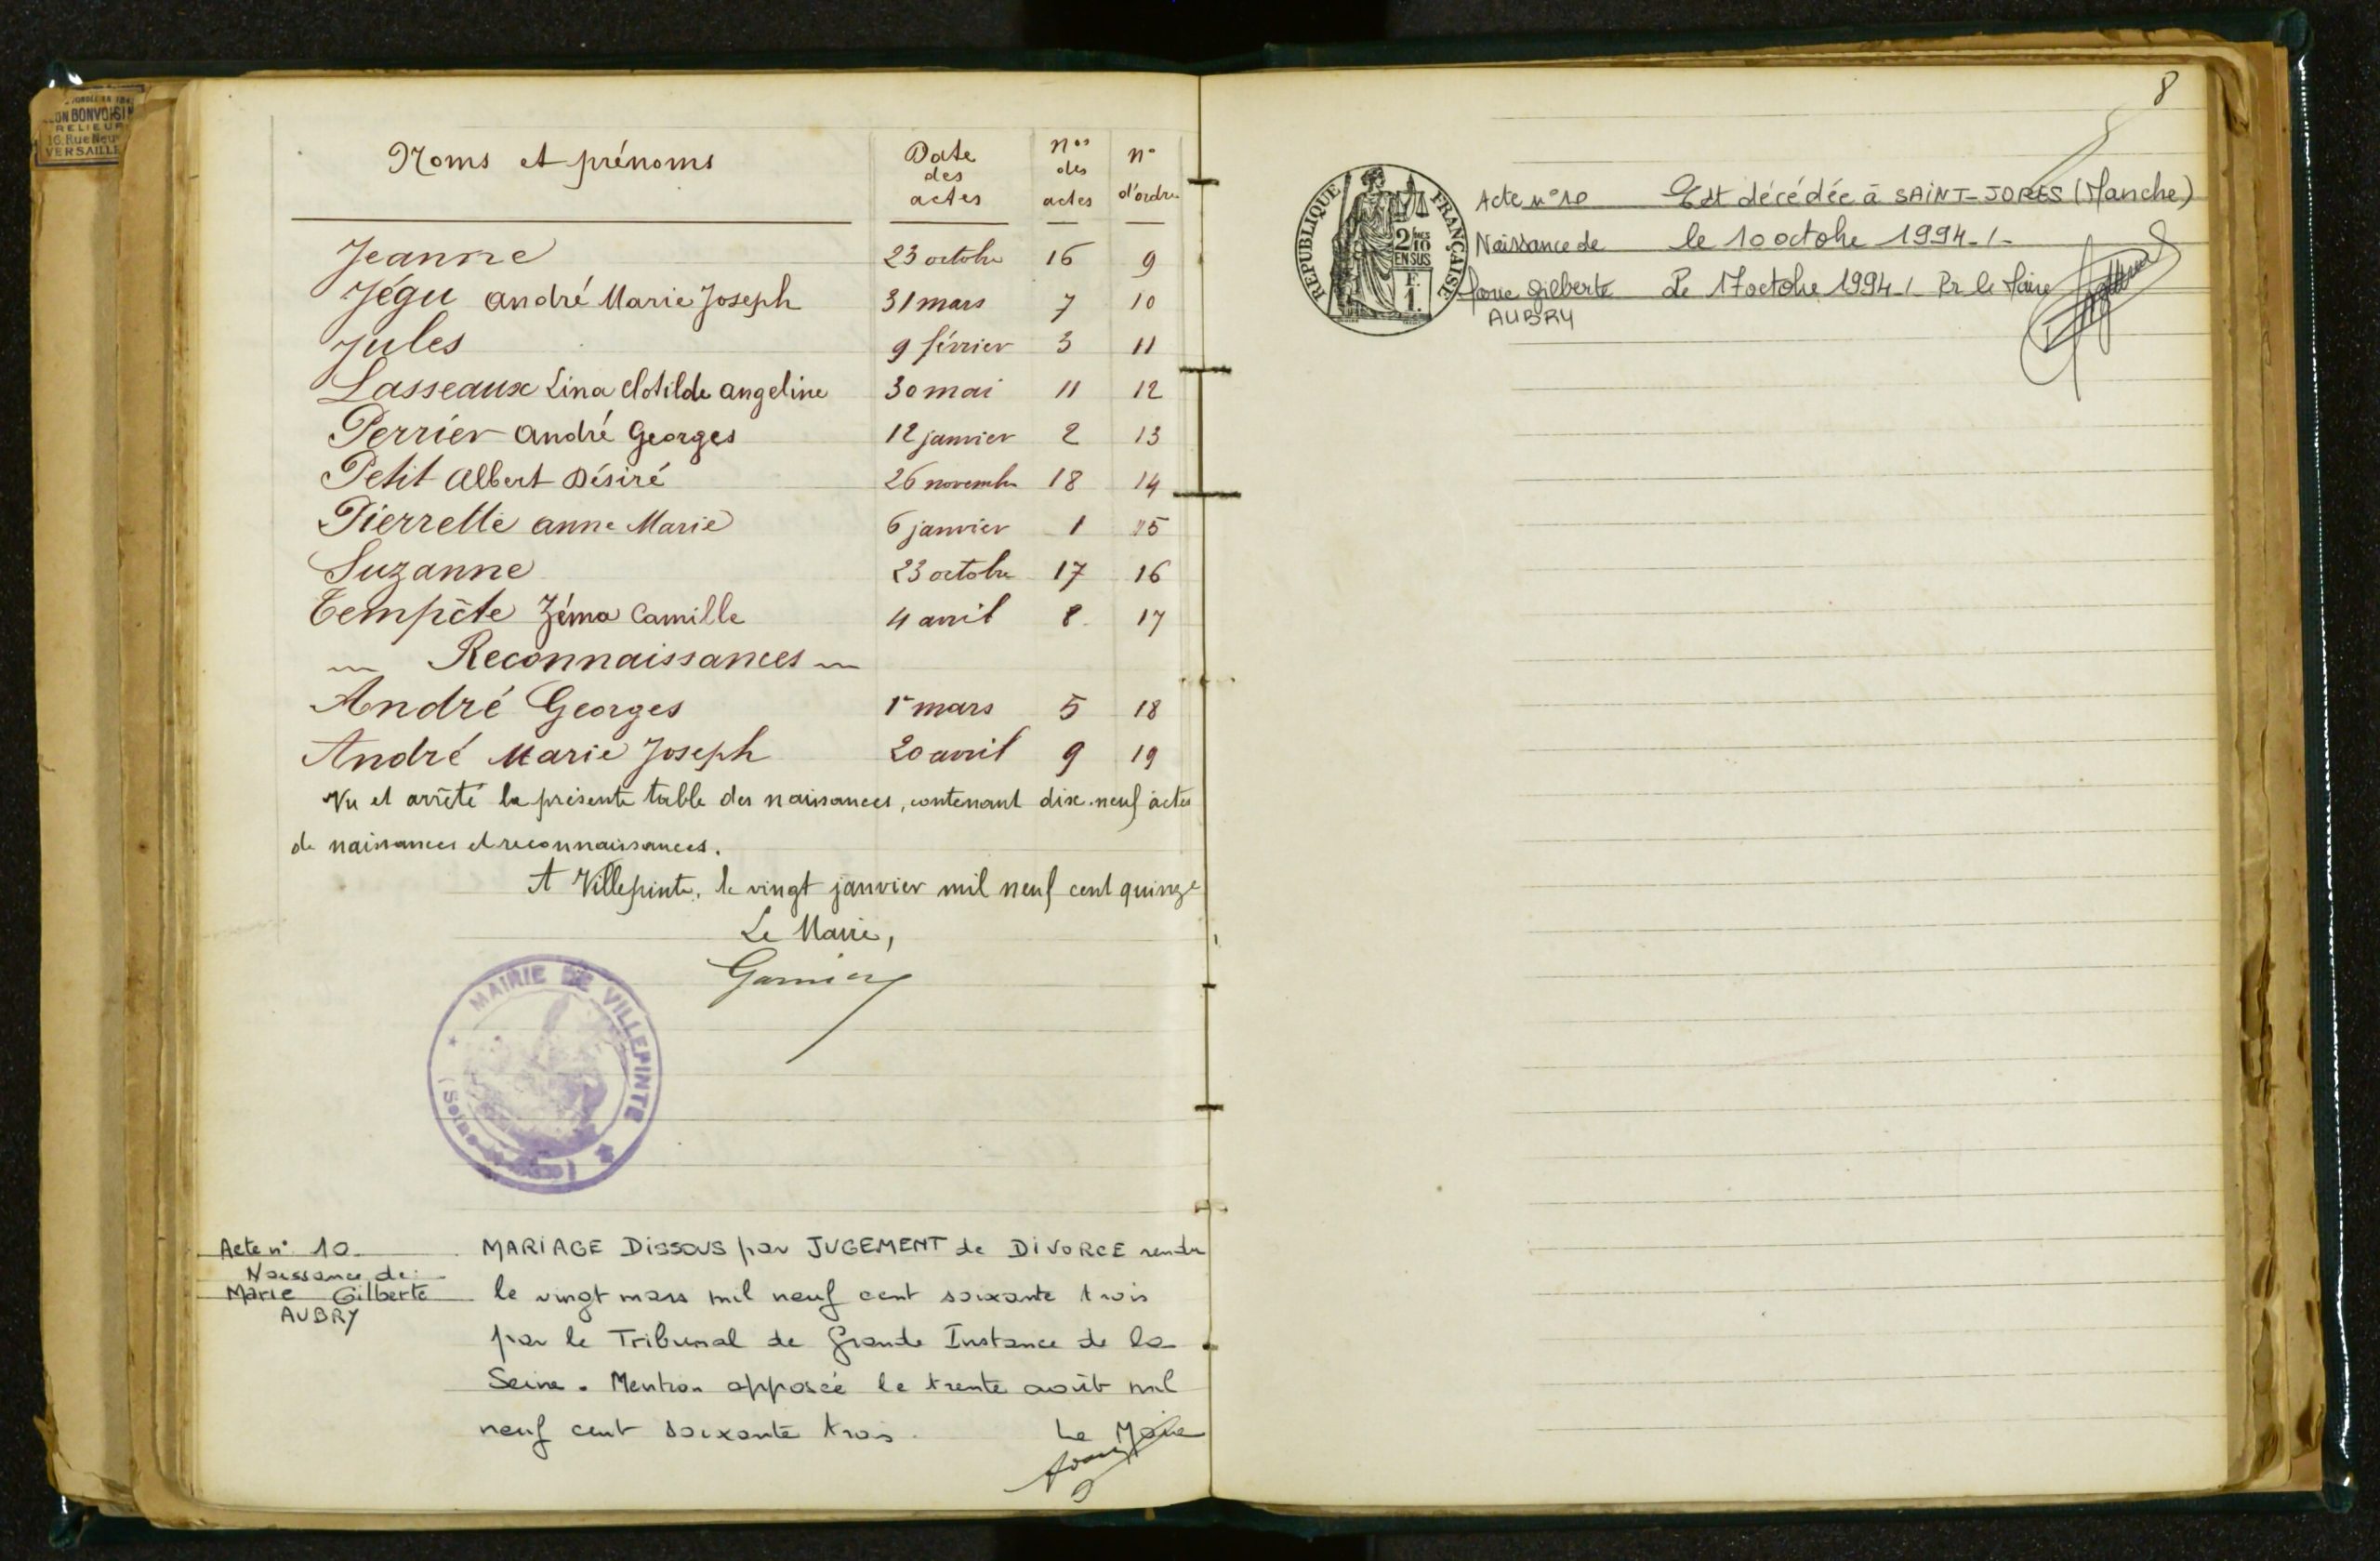 BONVOISIN
RELIEUR
16, Rue Neuve
VERSAILLES
Noms et prénoms Date des actes Nos des actes N° d'ordre
Jeanne 23 octobre 16 9
Jégu André Marie Joseph 31 mars 7 10
Jules 9 février 3 11
Lasseaux Lina Clotilde Angeline 30 mai 11 12
Perrier André Georges 12 janvier 2 13
Petit Albert Désiré 26 novembre 18 14
Pierrette Anne Marie 6 janvier 1 15
Suzanne 23 octobre 17 16
Tempête Zéma Camille 4 avril 8 17
Reconnaissances
André Georges 1er mars 5 18
André Marie Joseph 20 avril 9 19
Vu et arrêté la présente table des naissances, contenant dix-neuf actes
de naissances et reconnaissances.
A Villepinte, le vingt janvier mil neuf cent quinze
Le Maire,
MAIRIE DE VILLEPINTE
Acte n° 10
Naissance de
Marie Gilberte
AUBRY
MARIAGE DISSOUS par JUGEMENT de DIVORCE rendu
le vingt mars mil neuf cent soixante trois
par le Tribunal de Grande Instance de la
Seine. Mention apposée le trente août mil
neuf cent soixante trois.
Le Maire
8
RÉPUBLIQUE FRANÇAISE
2/10
EN SUS
F.
1.
Acte n° 10 Est décédée à SAINT-JORES (Manche)
Naissance de le 10 octobre 1994-/-
Gilberte Le 17 octobre 1994-/ Pr le Maire
AUBRY